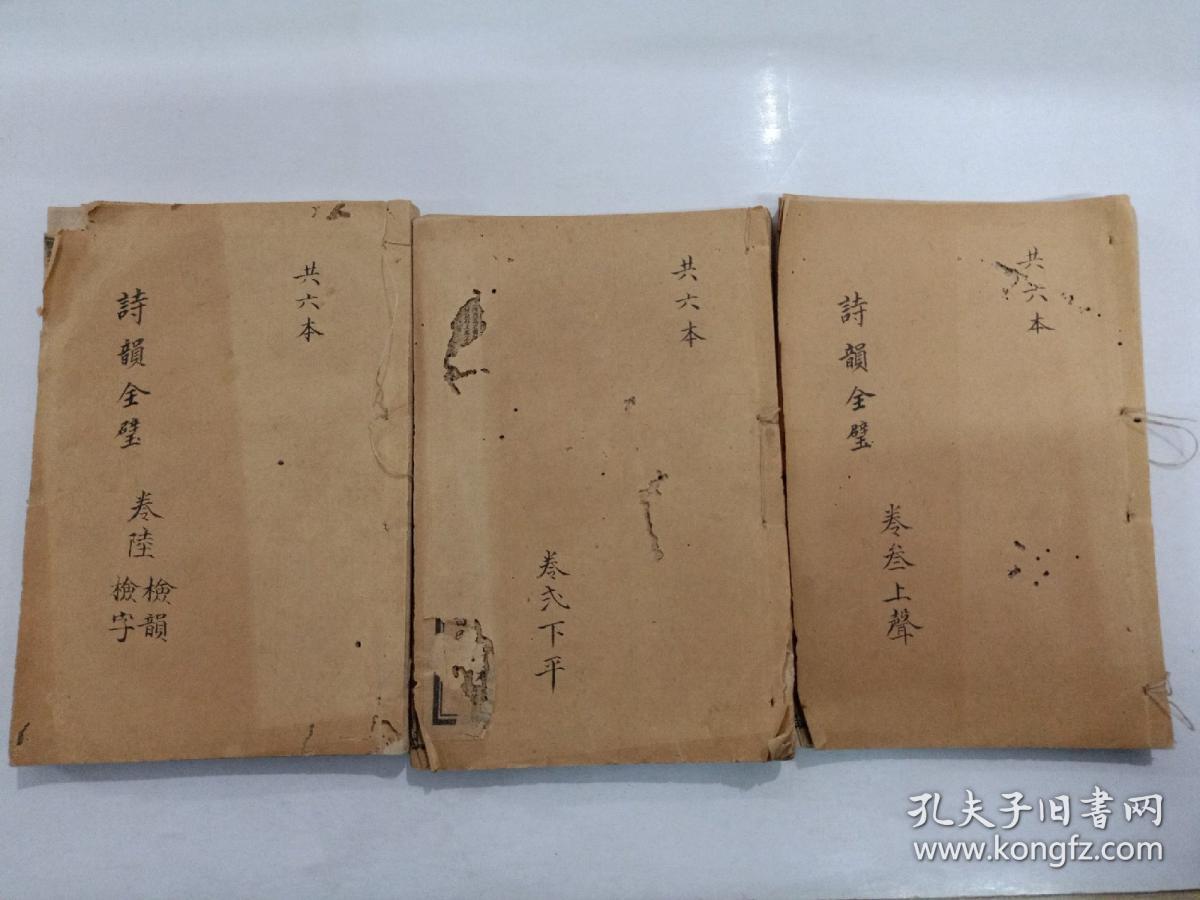 共六本
詩韻全璧
卷陸
檢韻
檢字
共六本
卷弍下平
共六本
詩韻全璧
卷叁上聲
孔夫子旧书网
www.kongfz.com